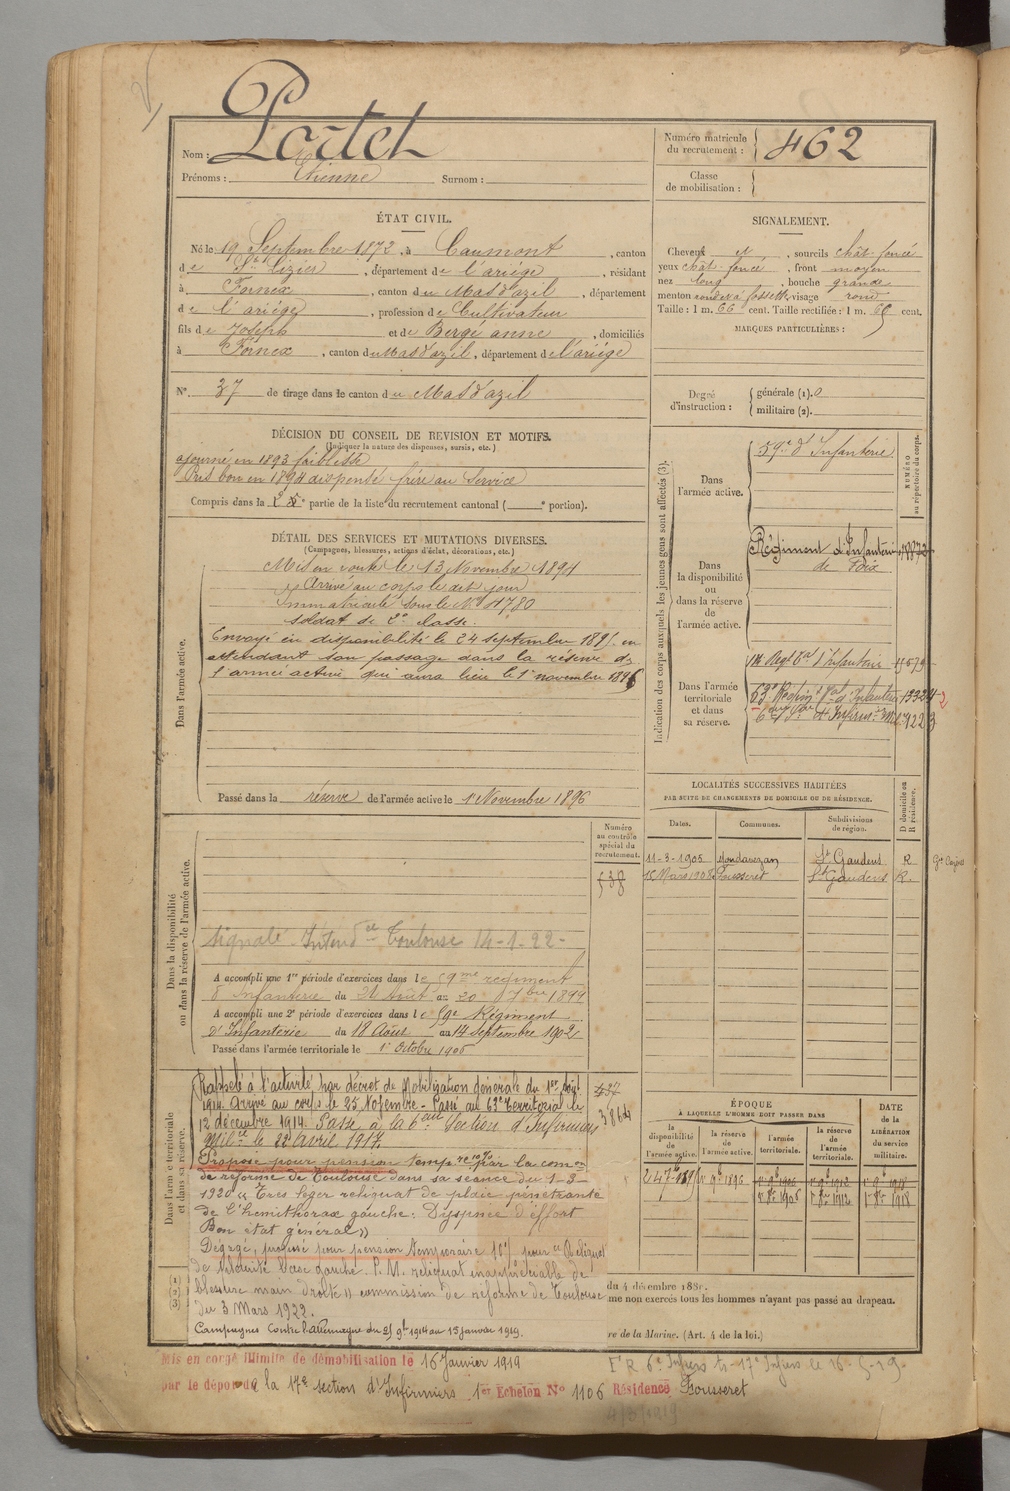 Nom : Portet
Prénoms : Etienne Surnom :
Numéro matricule du recrutement : 462
Classe de mobilisation :
ÉTAT CIVIL.
Né le 19 Septembre 1872, à Caumont, canton
de St Lizier, département de l'ariége, résidant
à Fornex, canton du Mas d'azil, département
de l'ariége, profession de Cultivateur
fils de Joseph et de Bergé anne, domiciliés
à Fornex, canton du Mas d'azil, département de l'ariége
N° 37 de tirage dans le canton du Mas d'azil
SIGNALEMENT.
Cheveux et, sourcils chât. foncé
yeux chât. foncé, front moyen
nez long, bouche grande
menton rond et à fossette, visage rond
Taille : 1 m. 66 cent. Taille rectifiée : 1 m. 66 cent.
MARQUES PARTICULIÈRES :
Degré d'instruction : générale (1). 0
militaire (2).
DÉCISION DU CONSEIL DE REVISION ET MOTIFS.
(Indiquer la nature des dispenses, sursis, etc.)
ajourné en 1893 faiblesse
Pris bon en 1894 dispensé frère au Service
Compris dans la partie de la liste du recrutement cantonal ( e portion).
DÉTAIL DES SERVICES ET MUTATIONS DIVERSES.
(Campagnes, blessures, actions d'éclat, décorations, etc.)
Dans l'armée active.
Mis en route le 13 Novembre 1894
Arrivé au corps le dit jour
Immatriculé sous le N°
soldat de 2e classe.
Envoyé en disponibilité le 24 septembre 1895 en
attendant son passage dans la réserve de
l'armée active qui aura lieu le 1er novembre 1896
Passé dans la réserve de l'armée active le 1er Novembre 1896
Indication des corps auxquels les jeunes gens sont affectés (3).
NUMÉRO au répertoire du corps.
Dans l'armée active.
59e d'Infanterie
Dans la disponibilité ou dans la réserve de l'armée active.
Régiment d'Infanterie
de Foix
Dans l'armée territoriale et dans sa réserve.
Regt Tal d'Infanterie
63e Regimt Tal d'Infanterie
LOCALITÉS SUCCESSIVES HABITÉES
PAR SUITE DE CHANGEMENTS DE DOMICILE OU DE RÉSIDENCE.
Dates. Communes. Subdivisions de région. D domicile ou R résidence.
11-3-1905 Mondavezan St Gaudens R
15 Mars 1908 Fousseret St Gaudens R.
Dans la disponibilité ou dans la réserve de l'armée active.
Numéro au contrôle spécial du recrutement.
538
Signalé Intendce Toulouse 14-1-22
A accompli une 1re période d'exercices dans le 59me regiment
d'Infanterie du 24 Août au 20 7bre 1899
A accompli une 2e période d'exercices dans le 59e Régiment
d'Infanterie du 18 Août au 14 Septembre 1902
Passé dans l'armée territoriale le 1er Octobre 1906
Dans l'armée territoriale et dans sa réserve.
Rappelé à l'activité par décret de Mobilisation générale du 1er Août
1914. Arrivé au corps le 25 Novembre - Passé au 63e Territorial le
12 décembre 1914. Passé à la 6eme Section d'Infirmiers
Milres le 22 Avril 1917.
437
3864
Proposé pour pension tempre 10% par la comon
de réforme de Toulouse dans sa séance du 1-3-
1920 « Très léger reliquat de plaie pénétrante
de l'hémithorax gauche. Dyspnée d'effort
Bon état général »
Dégagé, proposé pour pension temporaire 10% pour « Reliquat
de base gauche. P. M. reliquat inappréciable de
blessure main droite » commission de réforme de Toulouse
du 3 Mars 1922.
Campagnes Contre l'Allemagne du 25 9bre 1914 au 15 janvier 1919.
ÉPOQUE
À LAQUELLE L'HOMME DOIT PASSER DANS
la disponibilité de l'armée active. la réserve de l'armée active. l'armée territoriale. la réserve de l'armée territoriale.
DATE de la LIBÉRATION du service militaire.
24 7bre 1895 1er 9bre 1896 1er 9bre 1906 1er 9bre 1912 1er 9bre 1918
1er 8bre 1906 1er 8bre 1912 1er 8bre 1918
du 4 décembre 188
me non exercés tous les hommes n'ayant pas passé au drapeau.
re de la Marine. (Art. 4 de la loi.)
Mis en congé illimité de démobilisation le 16 Janvier 1919
par le dépôt de la 17e section d'Infirmiers 1er Echelon N° 1106 Résidence Fousseret